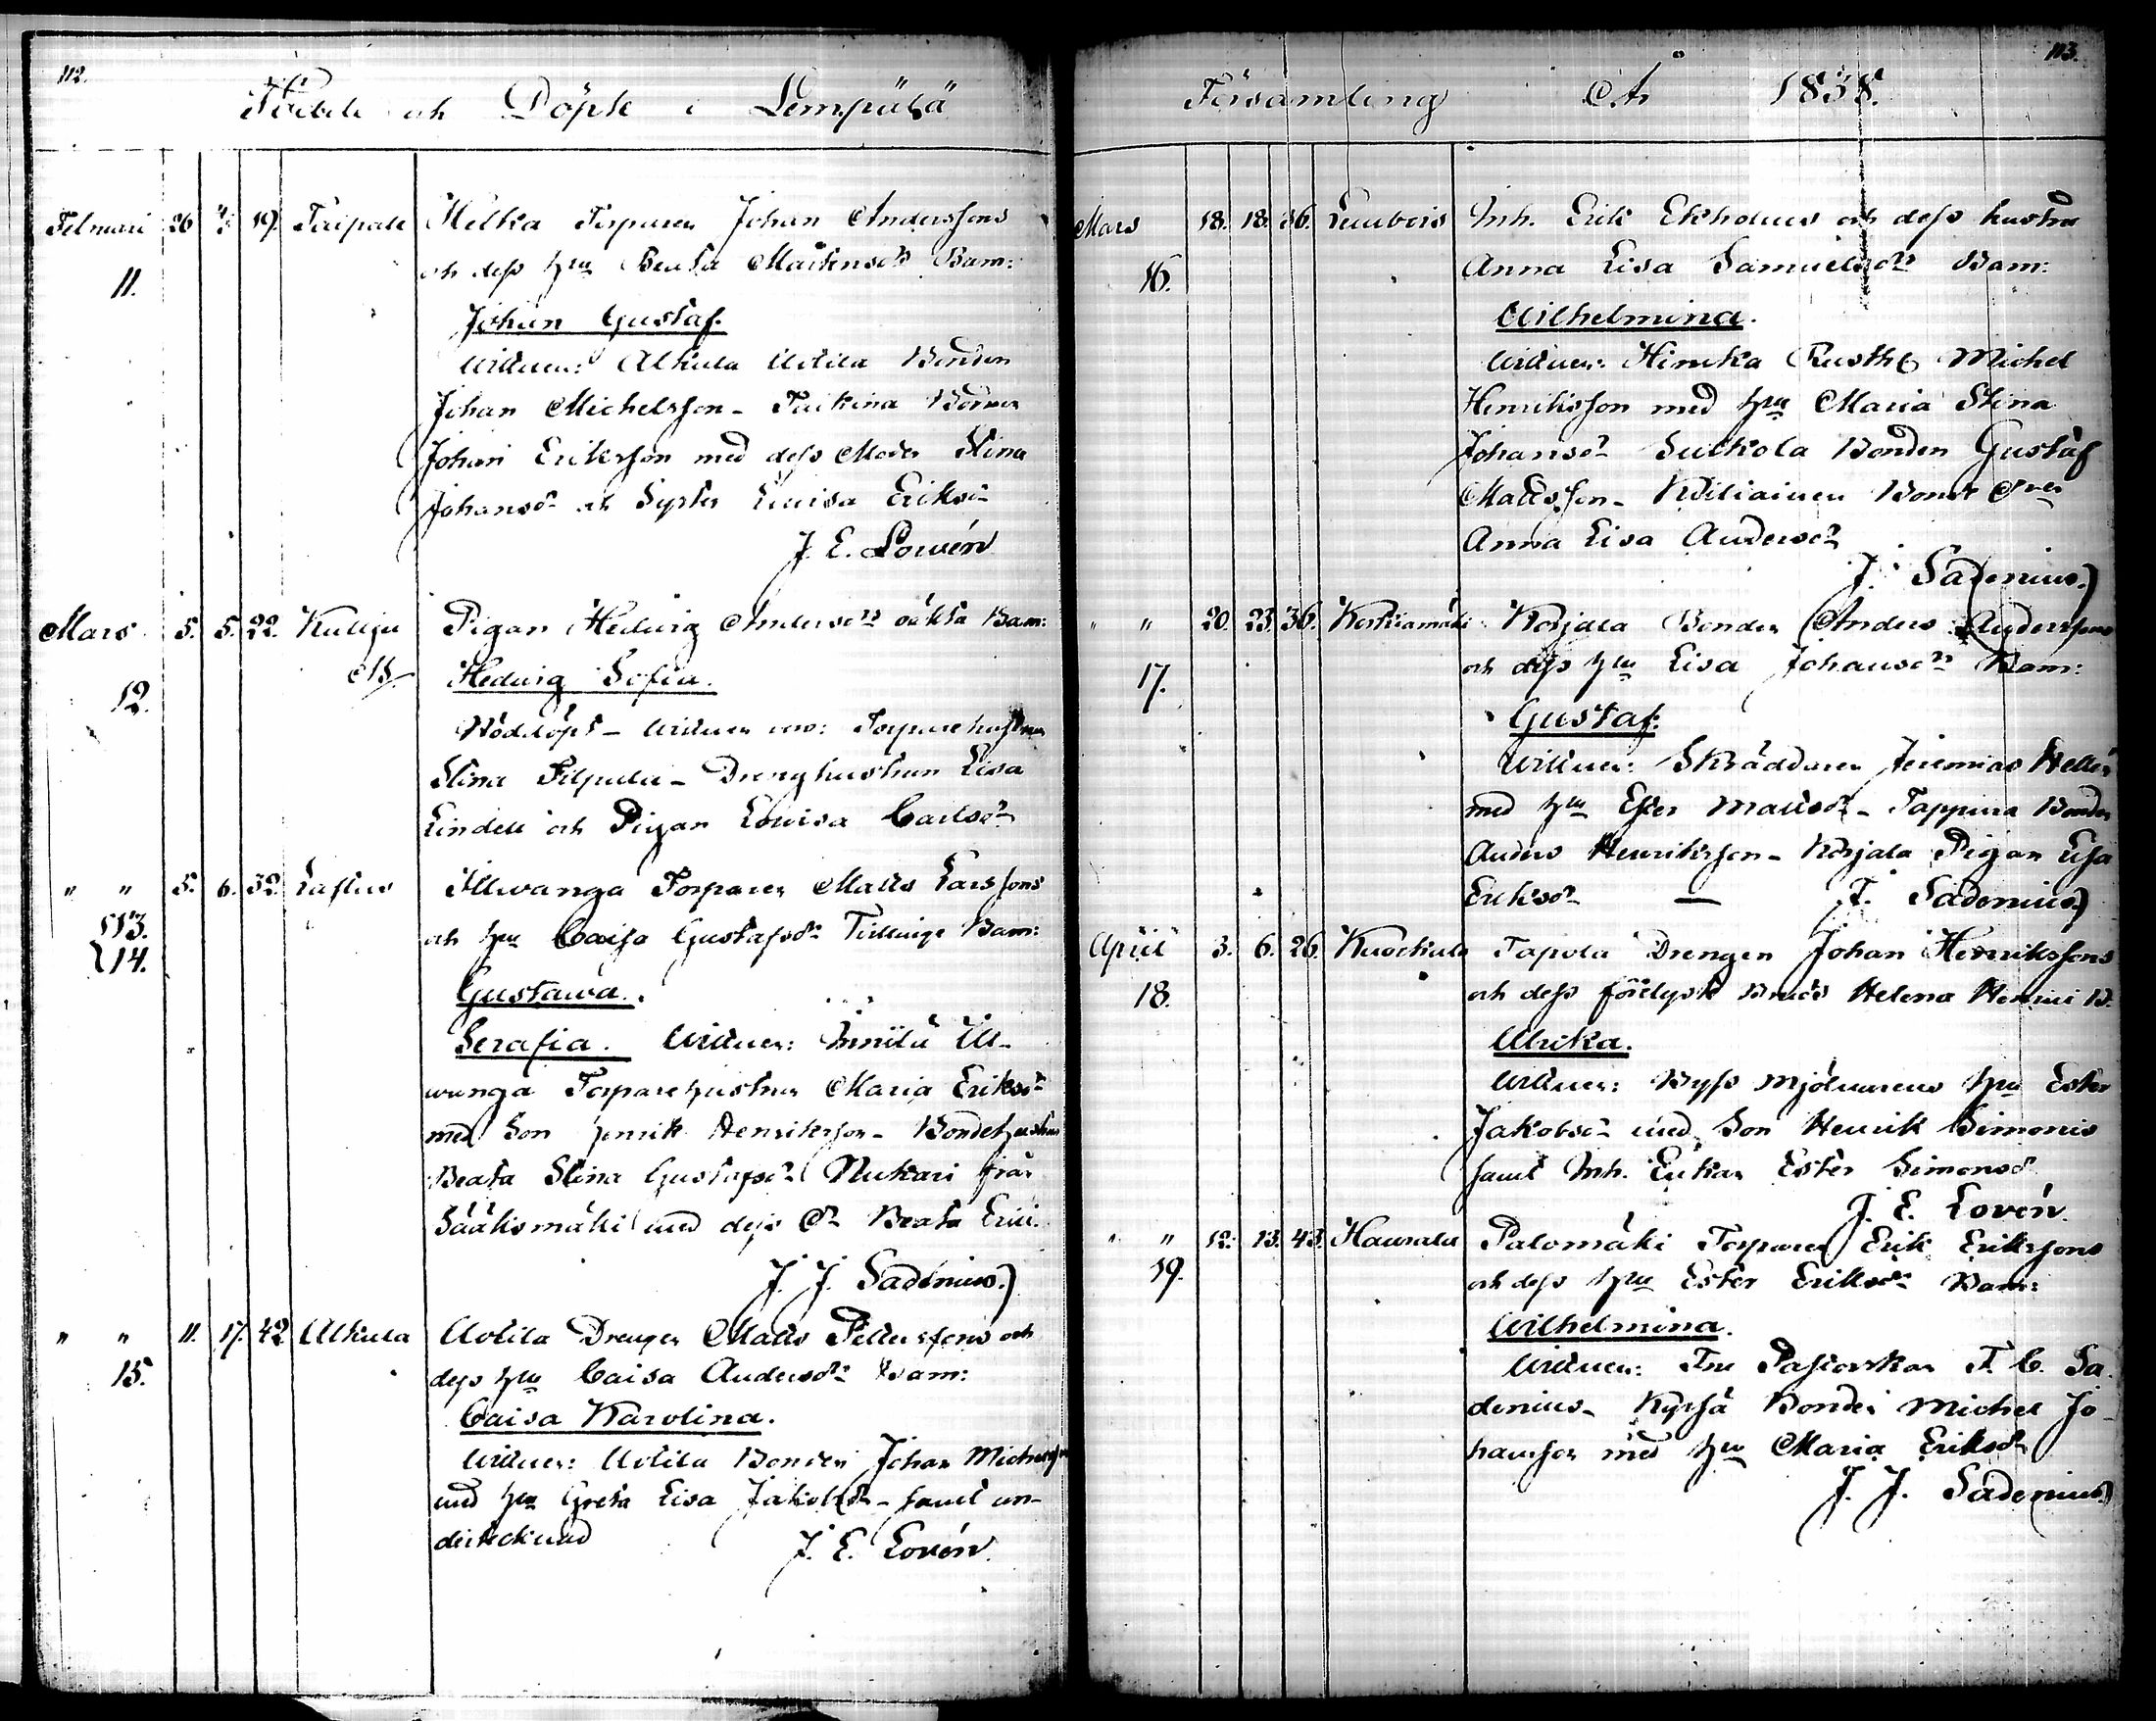 112.
Födde och Döpte i Lempäälä
Februari 26 19. Taipale Helka Torparen Johan Anderssons
11. och dess hu Beata Mårtensdr Barn:
Johan Gustaf.
Wittnen: Alkula Uotila Bonden
Johan Michelsson - Bonden
Johan Eriksson med dess Moder Stina
Johansdr och Syster Lovisa Eriksdr
J. E. Lovén
Mars 5. 5. 22. Kulju Pigan Hedwig Andersdrs oäkta Barn:
12. Hedwig Sofia.
Nöddöpt - Wittnen voro: Torparehustrun
Stina Filpula - Drenghustrun Lisa
Lindell och Pigan Lovisa Carlsdr
" " 5. 6. 32. Lastus Illwanga Torparen Matts Larssons
13. och hu Caisa Gustafsdrs Tvillinge Barn:
14.
Gustawa.
Serafia. Wittnen: Ill-
wanga Torparehustrun Maria Eriksdr
med Son Henrik Henriksson - Bondehustrun
Beata Stina Gustafsdr Nukari från
Sääksmäki med dess Dr Beata
J. J. Sadenius.)
" " 11. 17. 42 Alkula Uotila Drengen Matts Petterssons och
15. dess hu Caisa Andersdrs Barn:
Caisa Karolina.
Wittnen: Uotila Bonden Johan Michelsson
med hu Greta Lisa Jakobsdr - samt un-
dertecknad J. E. Lovén.
113.
Församling År 1838.
Mars 18. 18. 36. Lembois Inh. Erik Ekholms och dess hustru
16. Anna Lisa Samuelsdrs Barn:
Wilhelmina.
Wittnen: Himikka Rusth. Michel
Henriksson med hu Maria Stina
Johansdr Sukkola Bonden Gustaf
Mattsson - Bonde
Anna Lisa Andersdr
J. Sadenius.)
" " 20. 23. 36. Korkiamäki Korjala Bonden Anders Anderssons
17. och dess hu Lisa Johansdrs Barn:
Gustaf.
Wittnen: Skräddaren Jeremias
med hu Ester Mattsdr - Bonden
Anders Henriksson - Korjala Pigan Lisa
Eriksdr — J. Sadenius.)
April 3. 6. 26. Kuokkala Tapola Drengen Johan Henrikssons
18. och dess Helena B.
Ulrika.
Wittnen: Mjölnarens hu Ester
Jakobsdr med Son Henrik Simonis
samt Inh. Enkan Ester Simonsdr
J. E. Lovén.
" " 12. 13. 43. Hauvala Palomäki Torparen Erik Erikssons
19. och dess hu Ester Eriksdrs Barn:
Wilhelmina.
Wittnen: Fru Pastorskan F. C. Sa-
denius - Kyrfä Bonden Michel Jo-
hansson med hu Maria Eriksdr
J. J. Sadenius.)